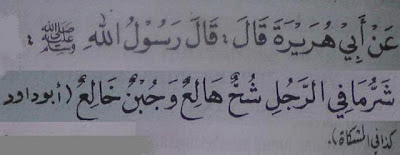 عَنْ أَبِيْ هُرَيْرَةَ قَالَ: قَالَ رَسُوْلُ اللهِ ﷺ:
شَرُّمَا فِي الرَّجُلِ شُحٌّ هَالِعٌ وَجُبْنٌ خَالِعٌ (أبوداود
كذافي المشكاة).